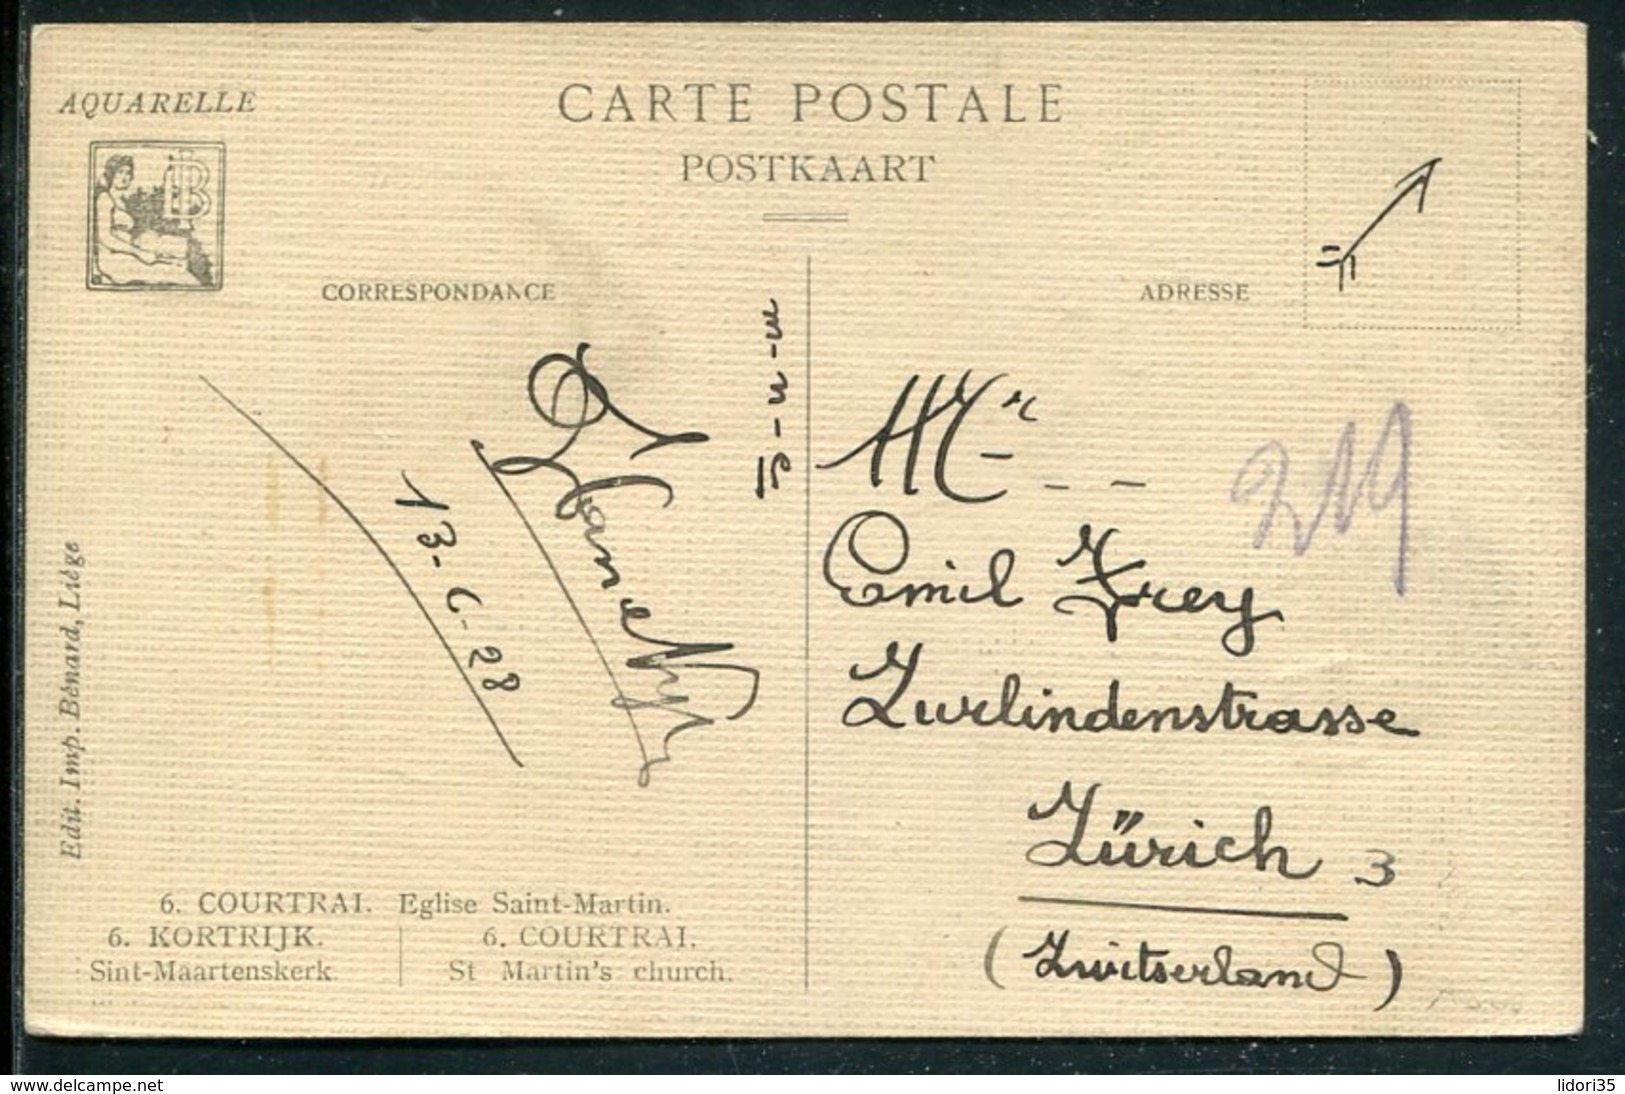 AQUARELLE
CARTE POSTALE
POSTKAART
B
CORRESPONDANCE
ADRESSE
13-6-28
Mr - -
Emil Frey
Zurlindenstrasse
Zürich 3
(Zwitserland)
Edit. Imp. Bénard, Liége
6. COURTRAI. Eglise Saint-Martin.
6. KORTRIJK.
Sint-Maartenskerk.
6. COURTRAI.
St Martin's church.
www.delcampe.net
lidori35